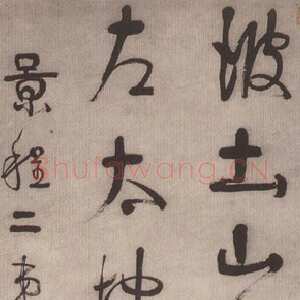 波土山
左太坤
景程二弟
Shufawang.CN